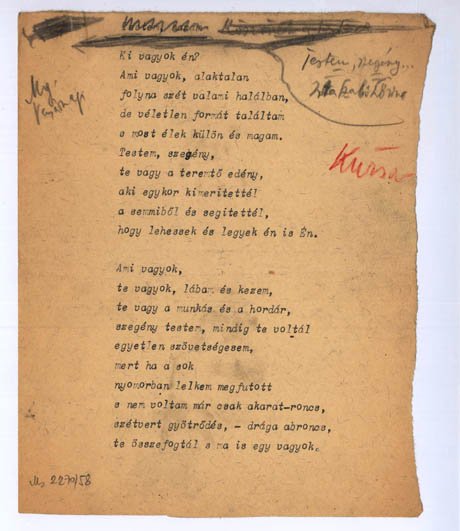 Testem, szegény...
Írta Szabó Lőrinc
Ki vagyok én?
Ami vagyok, alaktalan
folyna szét valami halálban,
de véletlen formát találtam
s most élek külön és magam.
Testem, szegény,
te vagy a teremtő edény,
aki egykor kimeritettél
a semmiből és segitettél,
hogy lehessek és legyek én is Én.
Ami vagyok,
te vagyok, lábam és kezem,
te vagy a munkás és a hordár,
szegény testem, mindig te voltál
egyetlen szövetségesem,
mert ha a sok
nyomorban lelkem megfutott
s nem voltam már csak akarat-roncs,
szétvert gyötrődés, - drága abroncs,
te összefogtál s ma is egy vagyok.
Ms 2270/58